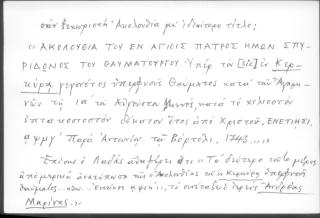 σὰν ξεχωριστὴ Ἀκολουθία μὲ ἰδιαίτερο τίτλο:
« ΑΚΟΛΟΥΘΙΑ ΤΟΥ ΕΝ ΑΓΙΟΙΣ ΠΑΤΡΟΣ ΗΜΩΝ ΣΠΥ-
ΡΙΔΩΝΟΣ ΤΟΥ ΘΑΥΜΑΤΟΥΡΓΟΥ. Ὑπὲρ τοῦ [sic] ἐν Κερ-
κύρᾳ γεγονότος ὑπερφυοῦς Θαύματος κατὰ τῶν Ἀγαρη-
νῶν τῇ ια τοῦ Αὐγούστου Μηνὸς κατὰ τὸ χιλιοστὸν
ἑπτακοσιοστὸν δέκατον ἔτος ἀπὸ Χριστοῦ. ΕΝΕΤΙΗΣΙ,
αψμγ´ Παρὰ Ἀντωνίῳ τῷ Βόρτολι. 1743..»
Ἐπίσης ὁ Λαδᾶς ἀναφέρει ὅτι «Τὸ δεύτερο τοῦτο μέρος
ἀνατύπωσις τῆς Ἀκολουθίας τοῦ ἐν Κερκύρᾳ ὑπερφυοῦς
θαύματος... τὸ Ἀνδρέας
Μαρίνης.»